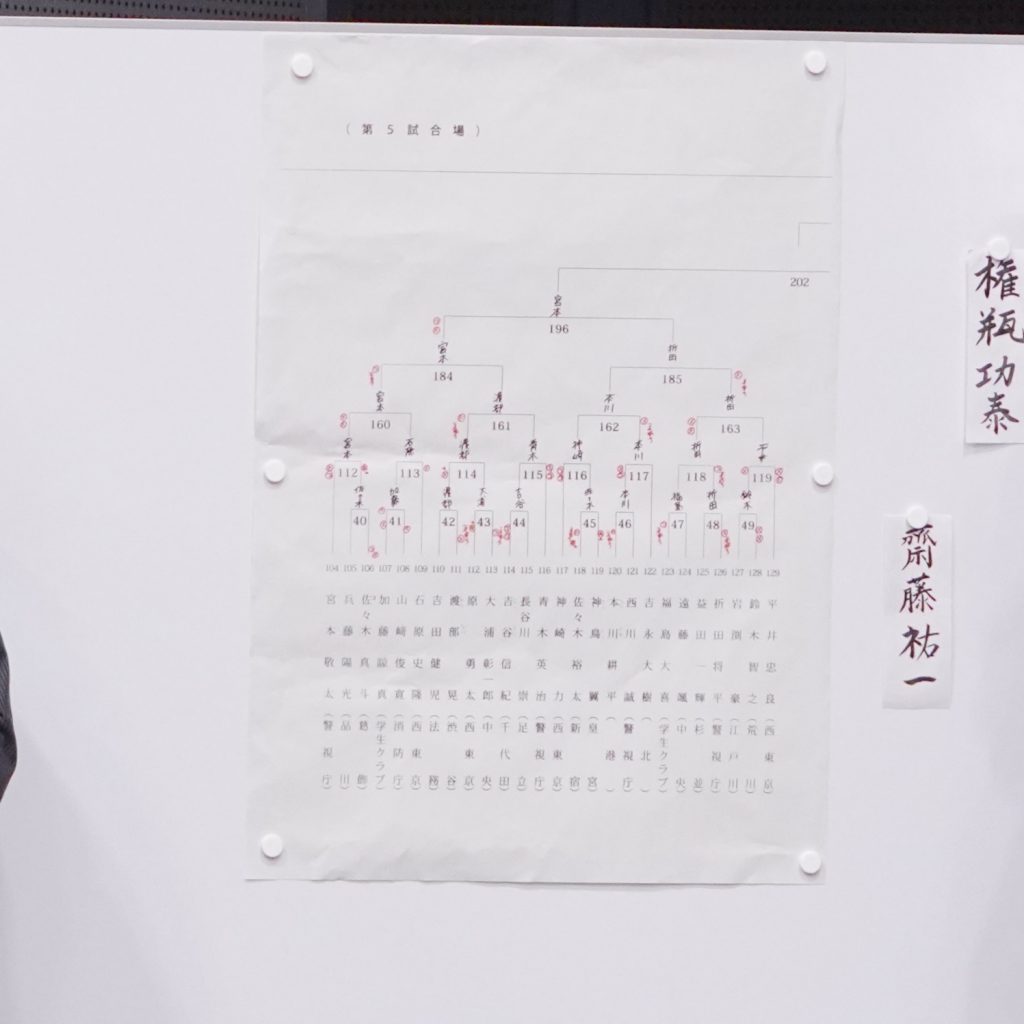 (第5試合場)
202
宮本
196
宮本
折田
184
185
宮本
本川
折田
160
161
162
163
宮本
青木
神崎
本川
折田
112
113
114
115
116
117
118
119
佐々木
加藤
渡部
大浦
吉谷
佐々木
本川
福島
折田
鈴木
40
41
42
43
44
45
46
47
48
49
104 105 106 107 108 109 110 111 112 113 114 115 116 117 118 119 120 121 122 123 124 125 126 127 128 129
宮本敬太(警視庁)
兵藤陽光(品川)
佐々木真斗(葛飾)
加藤諒真(学生クラブ)
山崎俊寛(消防庁)
石原史隆(西東京)
吉田健児(法務)
渡部晃(渋谷)
原勇太(西東京)
大浦彰一郎(中央)
吉谷信紀(千代田)
長谷川崇(足立)
青木英治(警視庁)
神崎力(西東京)
佐々木裕太(新宿)
神鳥翼(皇宮)
本川耕平(港)
西川誠(警視庁)
吉永大樹(北)
福島大喜(学生クラブ)
遠藤颯(中央)
益田一輝(杉並)
折田将平(警視庁)
岩渕豪(江戸川)
鈴木智之(荒川)
平井忠良(西東京)
権瓶功泰
齋藤祐一